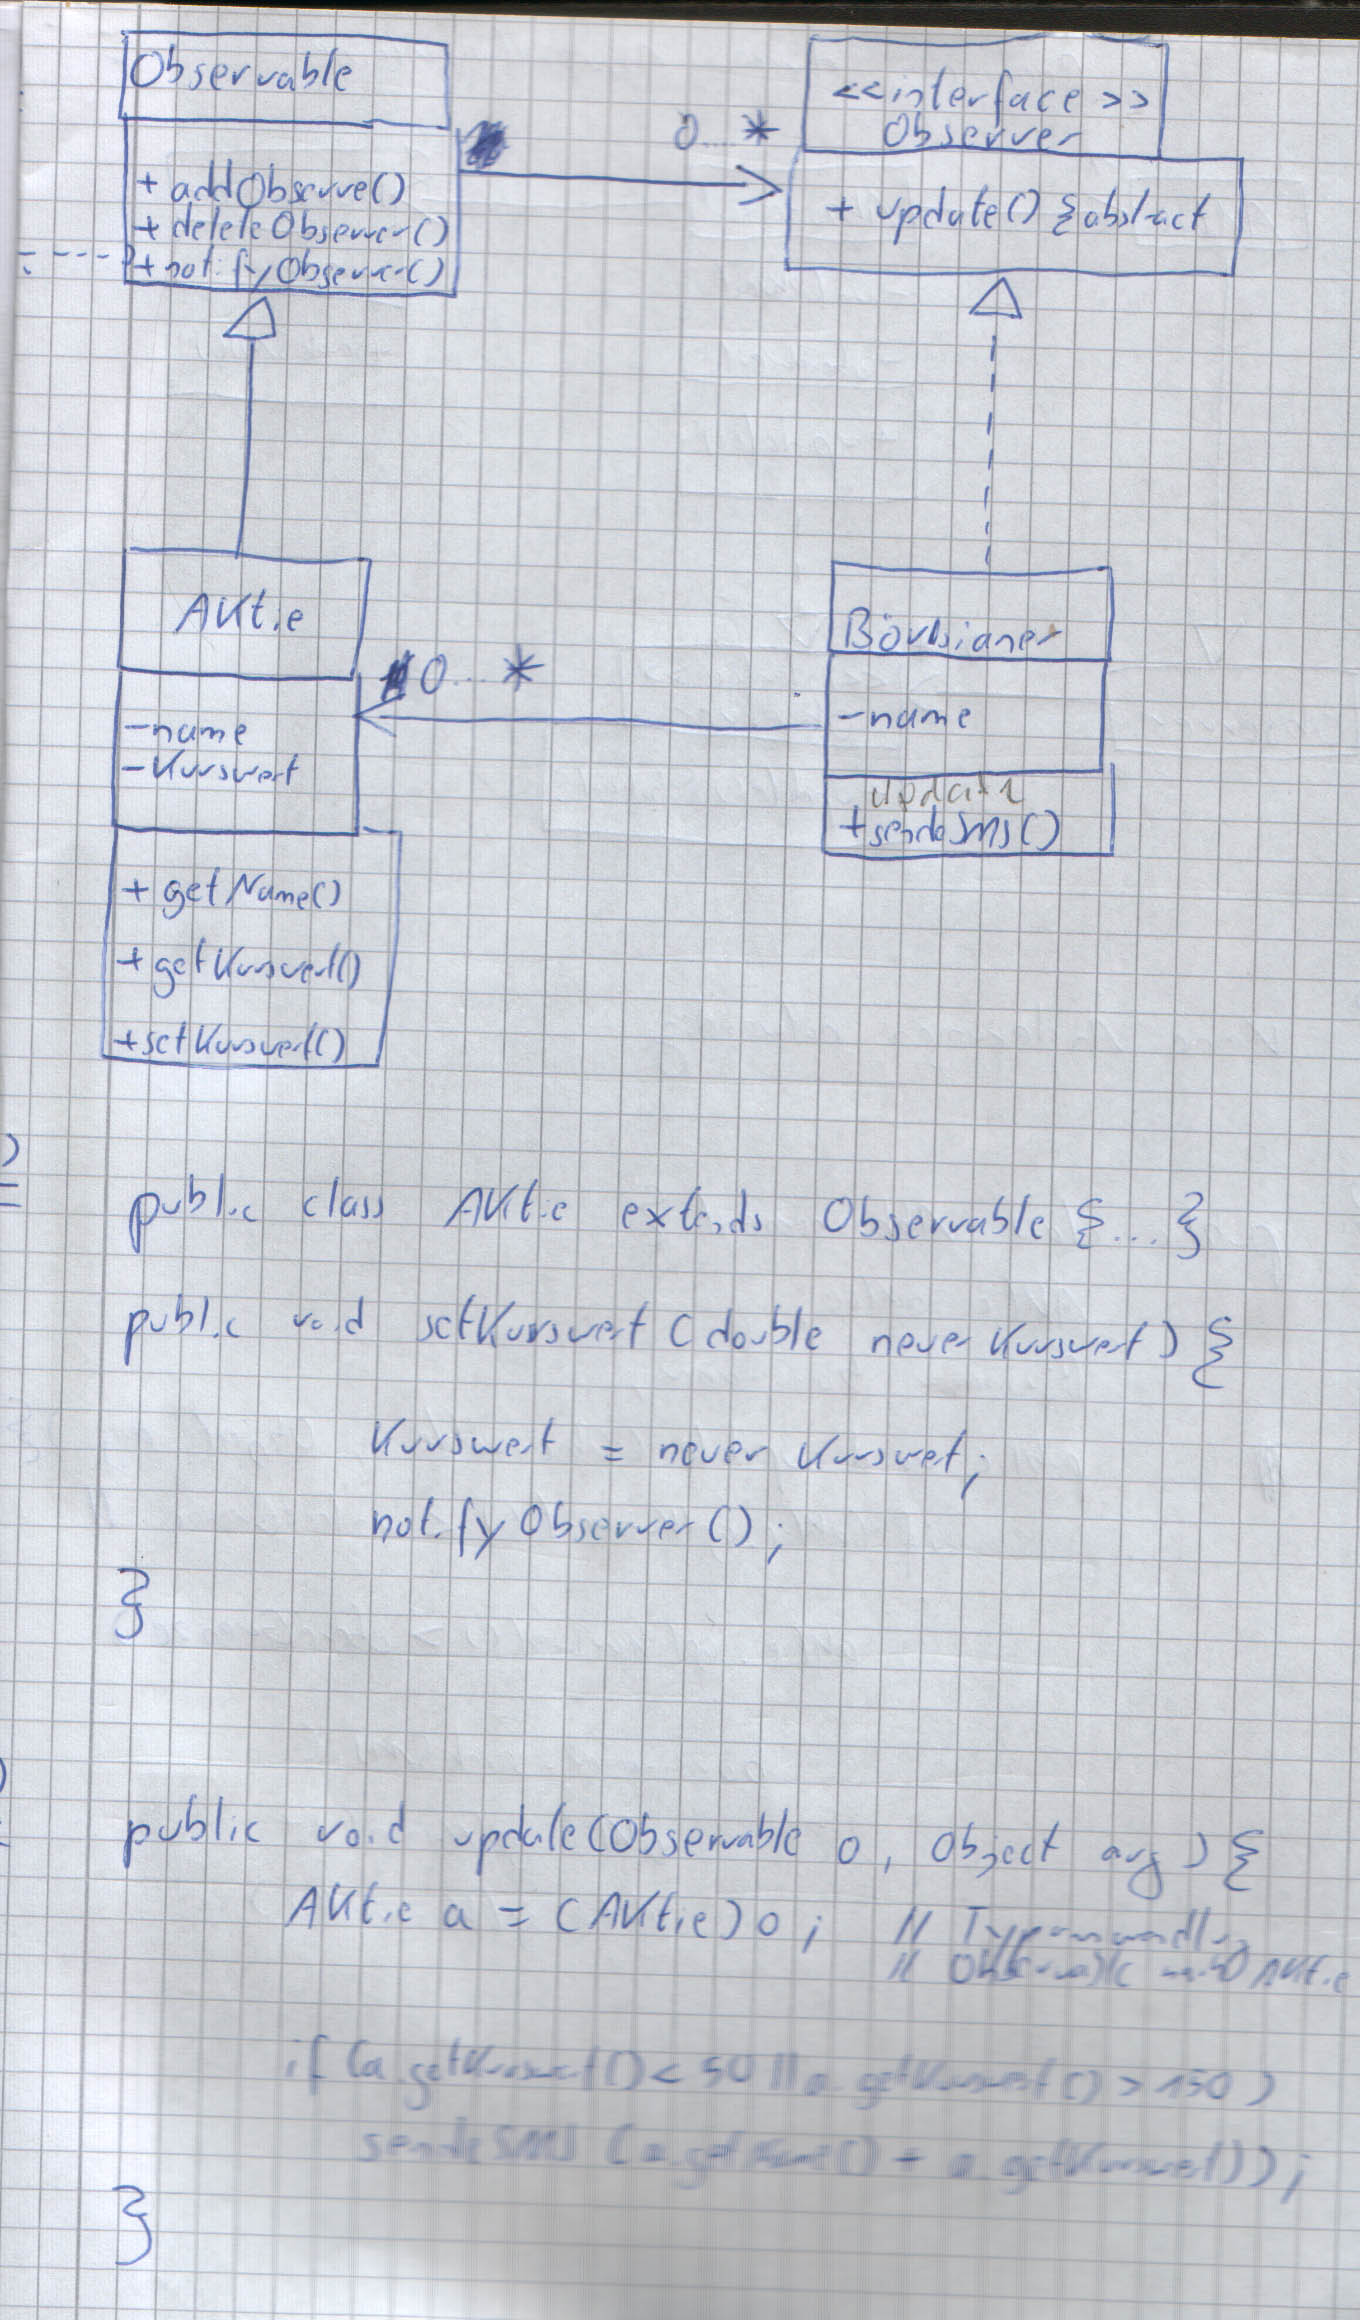 Observable
+ addObserve()
+ deleteObserver()
+ notifyObserver()
0...*
<<interface>>
Observer
+ update() {abstract
Aktie
- name
- Kurswert
+ getName()
+ getKurswert()
+ setKurswert()
0...*
Börsianer
- name
update
+ sendeSMS()
public class Aktie extends Observable {...}
public void setKurswert (double neuer Kurswert) {
Kurswert = neuer Kurswet;
notifyObserver();
}
public void update(Observable o, Object arg) {
Aktie a = (Aktie) o; // Typumwandlug
// Observable nach Aktie
if (a.getKurswert() < 50 || a.getKurswert() > 150)
sendeSMS (a.getName() + a.getKurswert());
}